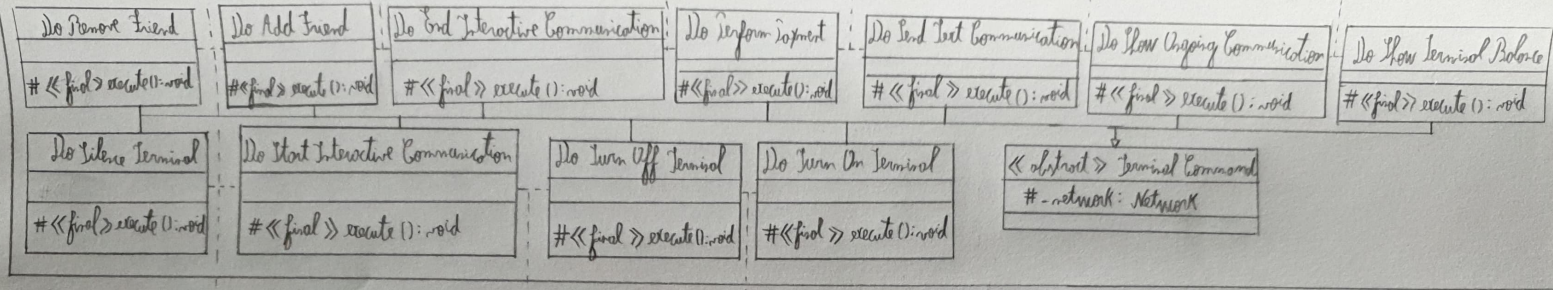 Do Remove Friend
# <<final>> execute(): void
Do Add Friend
# <<final>> execute(): void
Do End Interactive Communication
# <<final>> execute(): void
Do Perform Payment
# <<final>> execute(): void
Do Send Text Communication
# <<final>> execute(): void
Do Show Ongoing Communication
# <<final>> execute(): void
Do Show Terminal Balance
# <<final>> execute(): void
Do Silence Terminal
# <<final>> execute(): void
Do Start Interactive Communication
# <<final>> execute(): void
Do Turn Off Terminal
# <<final>> execute(): void
Do Turn On Terminal
# <<final>> execute(): void
<<abstract>> Terminal Command
# _network: Network